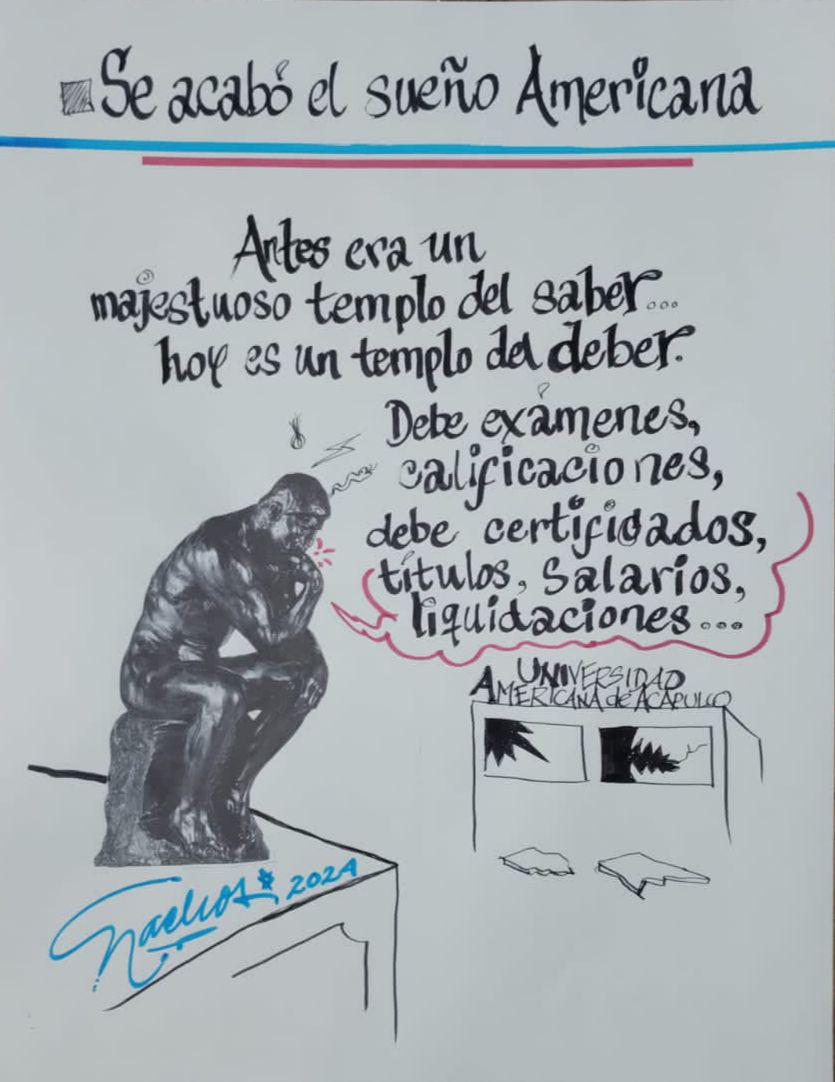 Se acabó el sueño Americana
Antes era un
majestuoso templo del saber...
hoy es un templo del deber.
Debe exámenes,
calificaciones,
debe certificados,
títulos, Salarios,
liquidaciones...
UNIVERSIDAD
AMERICANA de ACAPULCO
Nachos 2024